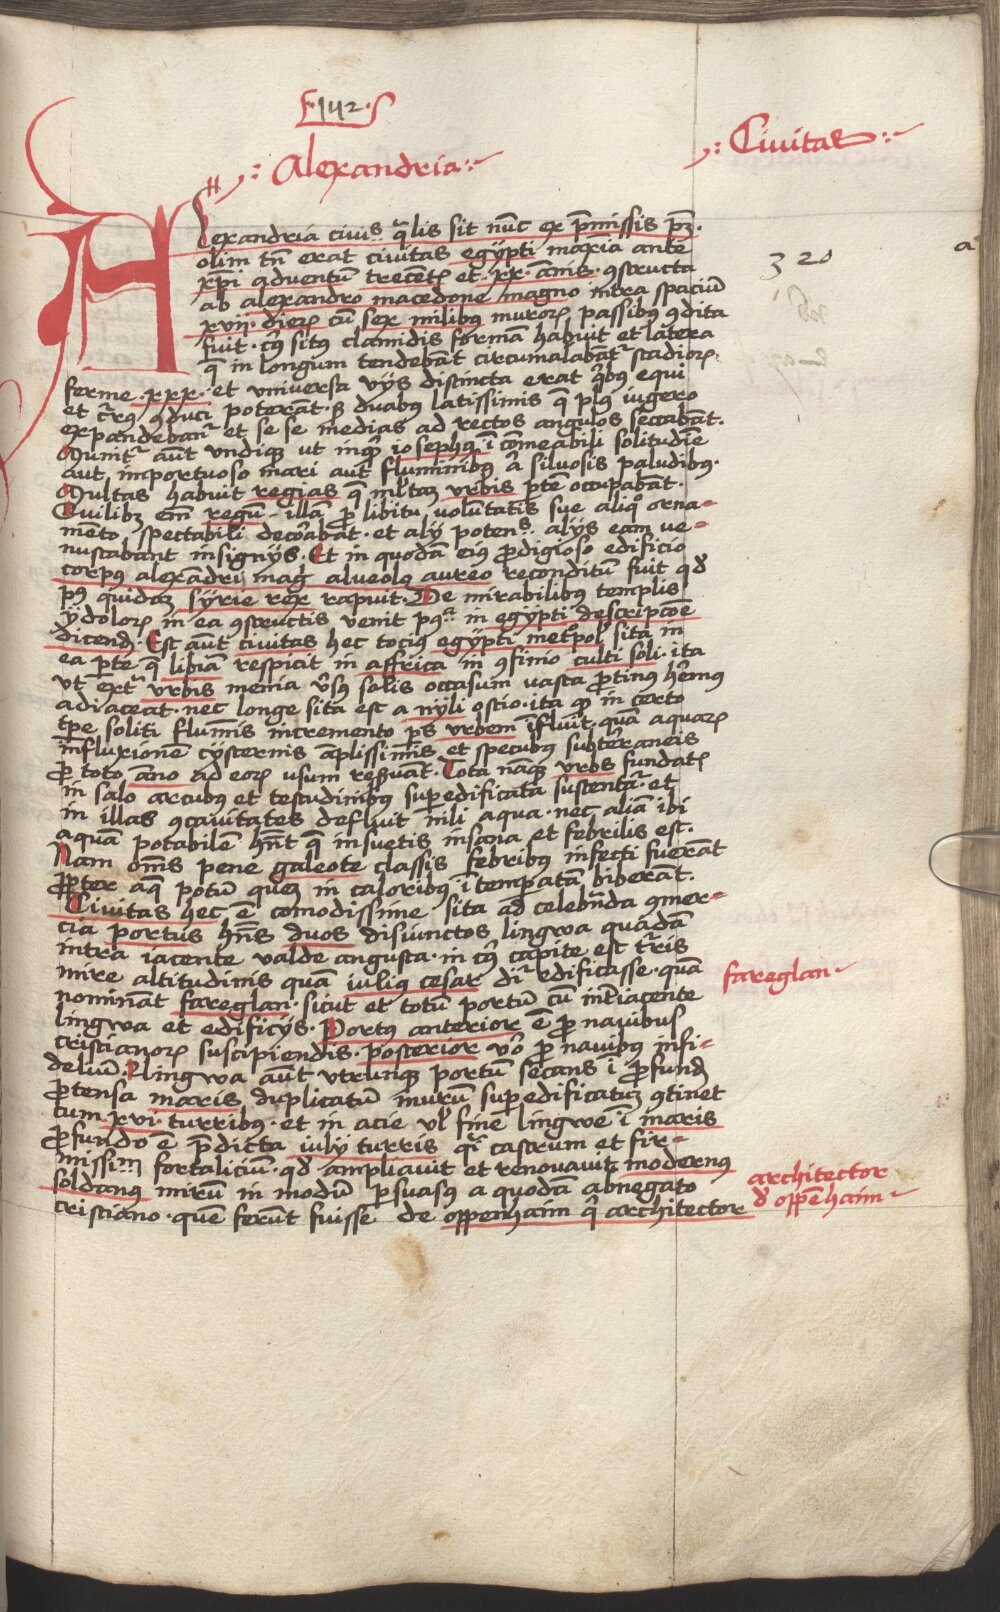 F 142 S
Alexandria
Civitas
Alexandria civis qualis sit nūc ex p̄missis pꝫ.
olim tn̄ erat civitas egypti maxīa ante
xp̄i adventum trecētꝝ et xx. annis. ꝯstructa
ab alexandro macedone magno intra spaciū
xvii. dierꝝ cū sex milibus murorꝝ passibus ꝯdita
fuit. cuiꝰ sitꝰ clamidis formā habuit et latera
q̄ in longum tendebāt circumalabātr stadiorꝝ
ferme xxx. et universa viis distincta erat q̄bꝰ equi
et curꝰ ꝯduci poterāt. sꝫ duabus latissimis q̄ plꝰ iugero
expandebantr et se se medias ad rectos angulos seccabāt.
Munitr aūt undiqꝫ ut inqt iosephꝰ ī comeabili solitudīe
aut importuoso mari aut fluminibꝰ a silvosis paludibꝰ.
Multas habuit regias q̄ ml̄tam urbis pte occupabāt.
Quilibꝫ em̄ regū illā p libitu volūtatis sue aliqͦ orna-
mēto spectabili decorabat. et alij potens alijs eam ve-
nustabant insignijs. Et in quodā eiꝰ p̄digioso edificio
corpꝰ alexādri mag alveolꝰ aureo reconditū fuit qđ
pꝰ quidam syrie rex rapuit. De mirabilibꝰ templis
ydolorꝝ in ea ꝯstructis venit pꝰ in egypti descripcōe
dicendꝫ. Est aūt civitas hec tocius egypti metpolꝰ sita in
ea pte q̄ libiā respicit in affrica in ꝯfinio culti soli. ita
ut extr urbis menia v̓sꝰ solis occasum vasta protinꝰ hēmꝰ
adiaceat. nec longe sita est a nyli ostio. ita ꝙ in certo
tp̄e soliti flum̄is incremento ps urbem īfluit. quā aquarꝝ
influxionē cysternis āplissimis et specubꝰ subterraneis
p̱ toto anno ad eorꝝ usum reservāt. Tota nāqꝫ urbs fundatꝝ
in salo arcubꝰ et testudinibꝰ superedificata sustentatr. et
in illas ꝯcavitates defluit nili aqua. nec aliā ibi
aquam potabilē hn̄t q̄ insuetis insana et febrilis est.
Nam om̄s pene galeote classis febribꝰ infecti fuerāt
p̱pter aq̄ potū quem in caloribꝰ ī tempatā biberāt.
Civitas hec ē comodissime sita ad celebrāda ꝯmer-
cia portus hn̄s duos disiunctos lingwa quadā
intra iacente valde angusta. in cuiꝰ capite est turris
mire altitudinis quā iuliꝰ cesar dir edificasse. quā
nominat fareglan. sicut et totū portū cū interiacente
lingwa et edificijs. Portꝰ anterior ē p̱ navibus
cristianorꝝ suscipiendis. posterior vͦ p̱ navibꝰ infi-
deliū. Lingwa aūt utrunqꝫ portū secans ī p̱fundꝫ
p̱tensa maris duplicatū murū superedificatum ꝯtinet
cum xvi. turribꝰ. et in acie vl̄ fine lingwe ī maris
p̱fundo ē p̄dicta iulij turris q̄ castrum et fir-
missim fortaliciū. qđ ampliavit et renovavit modernꝰ
soldanꝰ mirū in modū psuasꝰ a quodā abnegato
cristiano. quē ferūt fuisse de oppenhaim q̄ architector
320
a
fareglan
architector
đ oppēhaim